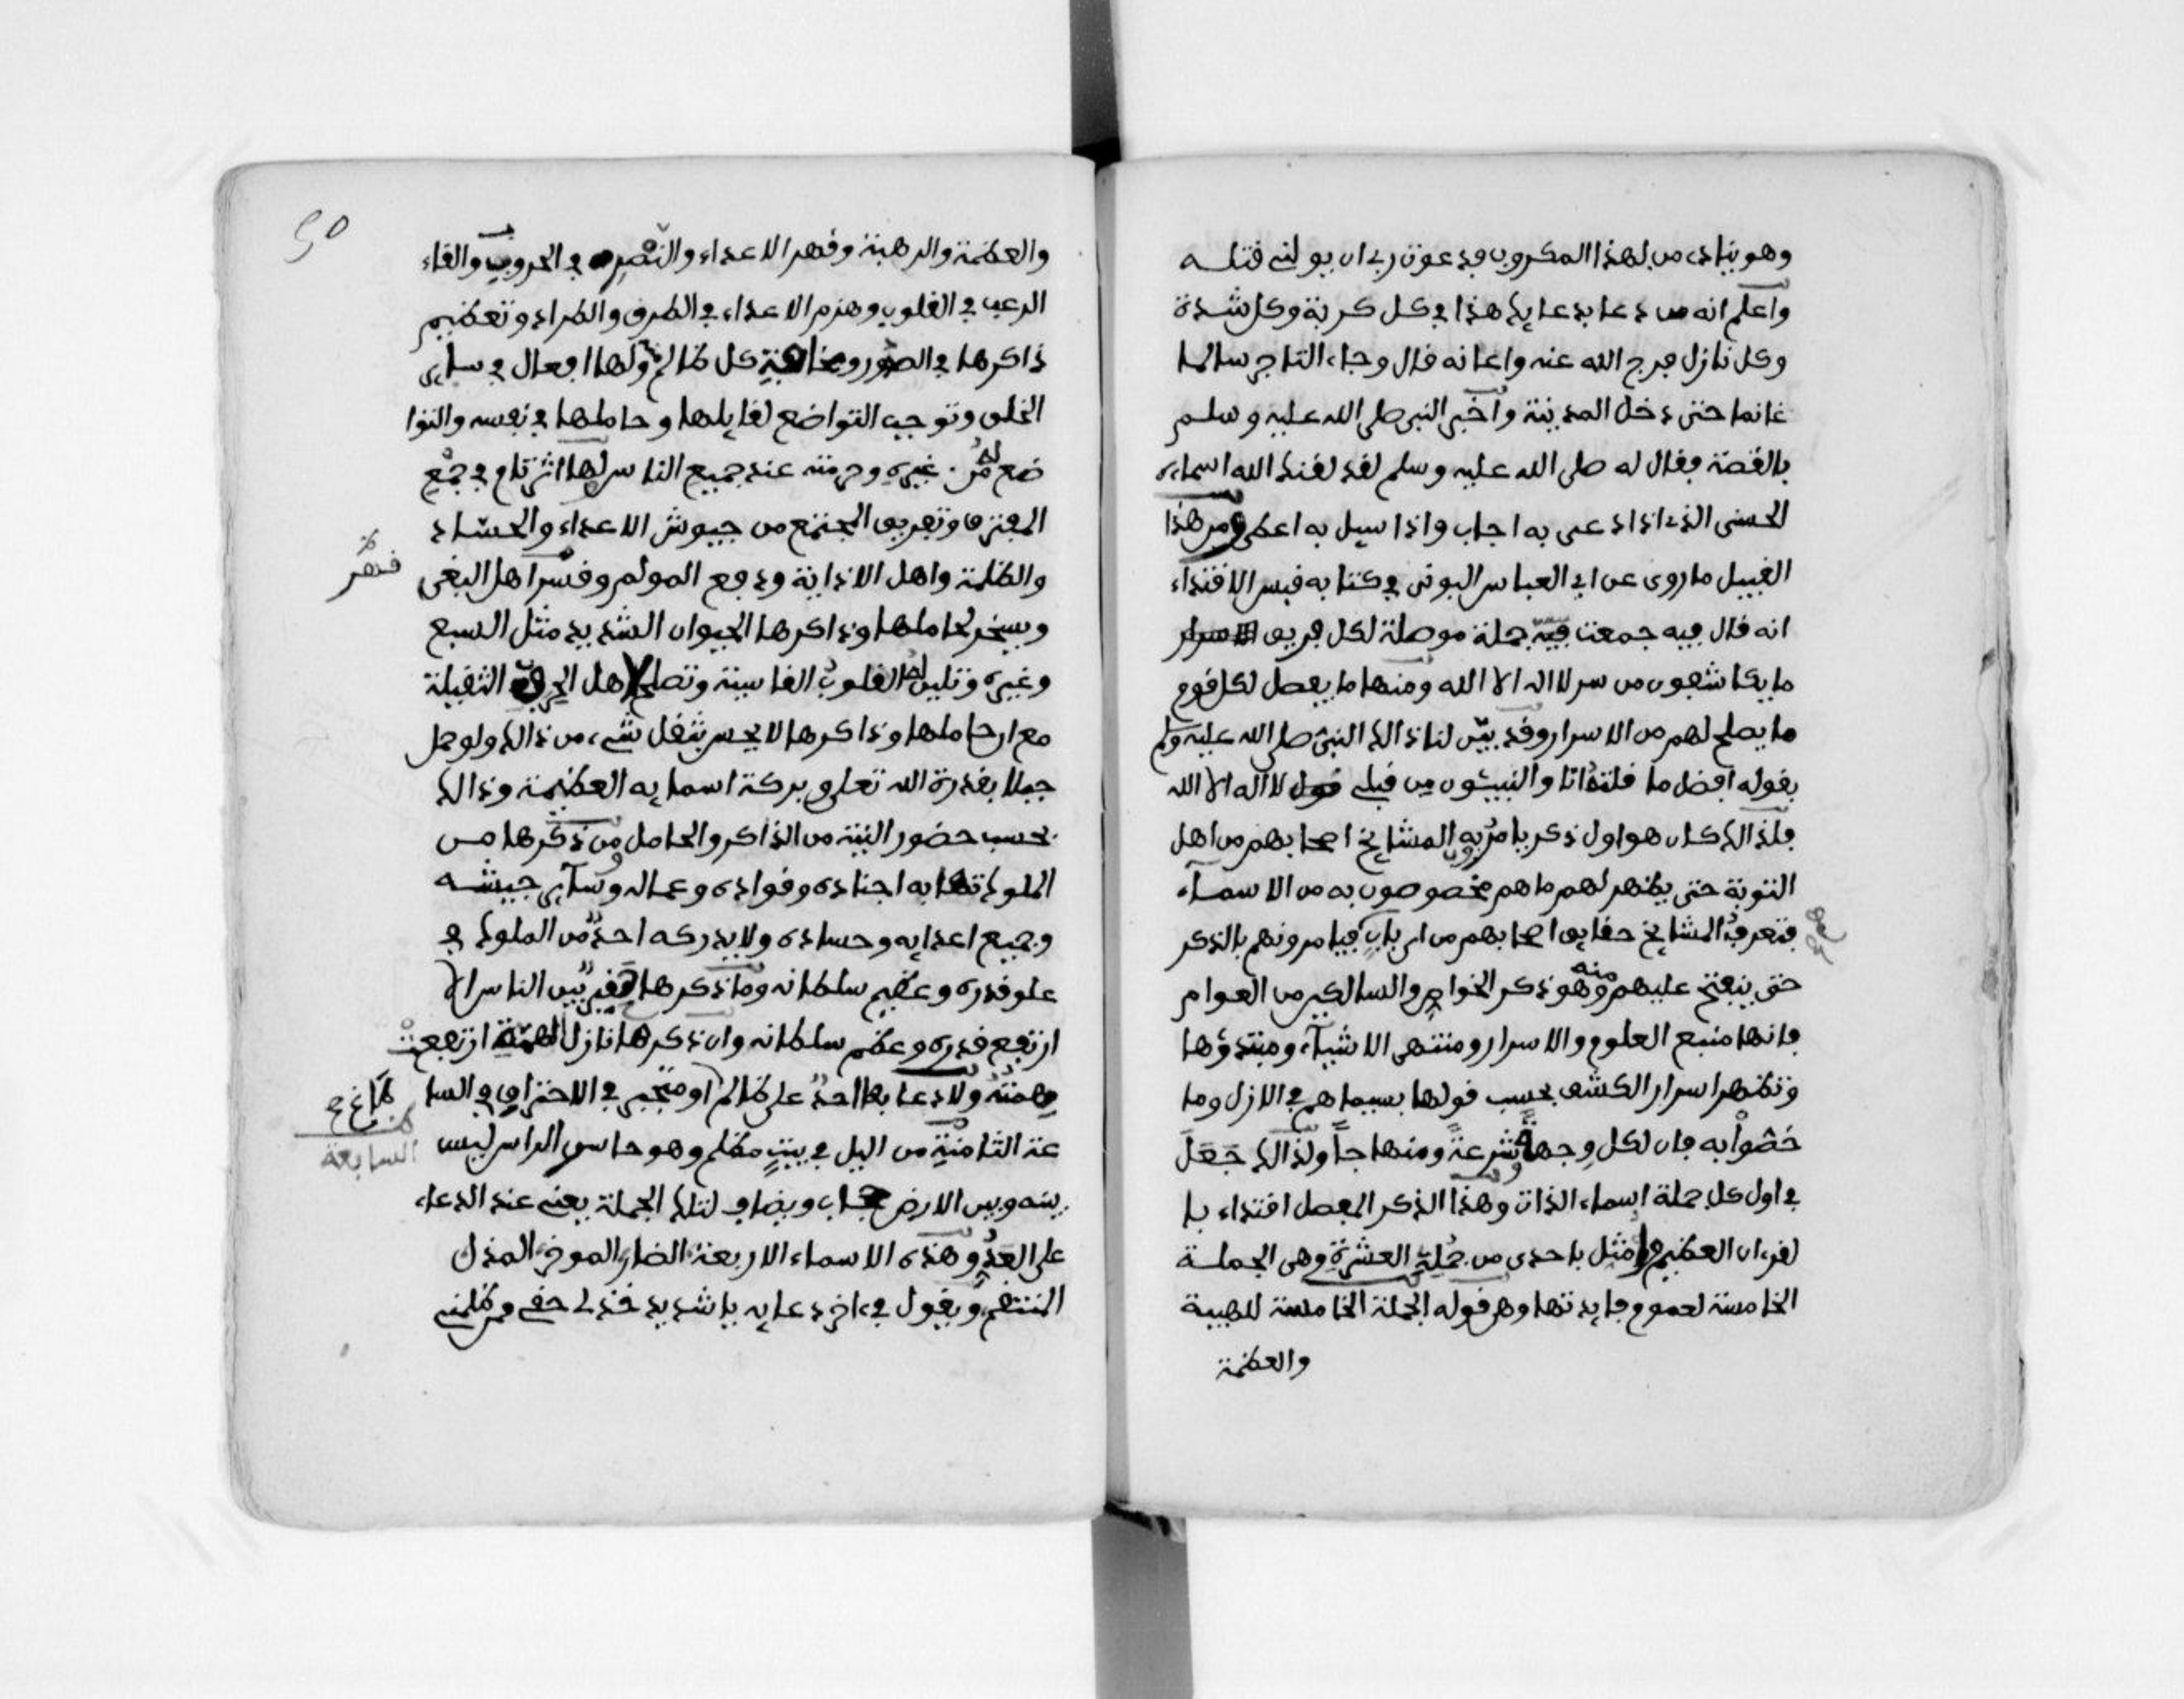 وهو ينادى من لهذا المكروب فدعوت ربى ان يولنى قتله
واعلم انه من دعا بدعايك هذا فى كل كربة وكل شدة
وكل نازل فرج الله عنه واعانه قال وجاء التاجر سالما
غانما حتى دخل المدينة واخبر النبى صلى الله عليه وسلم
بالقصة فقال له صلى الله عليه وسلم لقد لقنك الله اسماءه
الحسنى الذى اذا دعى به اجاب واذا سيل به اعطى ومن هذا
القبيل ما روى عن ابى العباس البونى فى كتابه قبس الاقتداء
انه قال فيه جمعت فيه جملة موصلة لكل فريق
ما يكاشفون من سر لا اله الا الله ومنها ما يفصل لكل قوم
ما يصلح لهم من الاسرار وقد بين لنا ذالك النبى صلى الله عليه وسلم
بقوله افضل ما قلته انا والنبيئون من قبلى قول لا اله الا الله
فلذالك كان هو اول ذكر يامر به المشايخ اصحابهم من اهل
التوبة حتى يظهر لهم ما هم مخصوصون به من الاسماء
فتعرف المشايخ حقايق اصحابهم من ارباب فيامرونهم بالذكر
حتى ينفتح عليهم منه وهو ذكر الخواص والسالكين من العوام
فانها منبع العلوم والاسرار ومنتهى الاشياء ومبتدؤها
وتظهر اسرار الكشف بحسب قولها بسيماهم فى الازل وما
خصوا به فان لكل وجهة شرعة ومنهاجا ولذالك جعل
فى اول كل جملة اسماء الذات وهذا الذكر المفصل اقتداء با
لقرءان العظيم مثل باحدى من جمله العشرة وهى الجملة
الخامسة لعموم فايدتها وهى قوله الجملة الخامسة للهيبة
والعظمة
50
والعظمة والرهبة وقهر الاعداء والنصر فى الحروب والقاء
الرعب فى القلوب وهزم الاعداء فى الطرف والطراد وتعظيم
ذاكرها فى الصور ومخافة كل ظالم ولها افعال فى ساير
الخلق وتوجب التواضع لقايلها وحاملها فى نفسه والتوا
ضع له من غيره وحرمته عند جميع الناس لها اثر تام فى جمع
المفترق وتفريق المجتمع من جيوش الاعداء والحساد
والظلمة واهل الاذاية ودفع المولم وقسر اهل البغى
قهر
ويسخر لحاملها وذاكرها الحيوان الشديد مثل السبع
وغيره وتلين له القلوب القاسية وتصلح لاهل الحرف الثقيلة
مع ان حاملها وذاكرها لا يحس بثقل شىء من ذالك ولو حمل
جبلا بقدرة الله تعلى وبركة اسمايه العظيمة وذالك
بحسب حضور النية من الذاكر والحامل ومن ذكرها من
الملوك تهابه اجناده وقواده وعماله وساير جيشه
وجميع اعدايه وحساده ولا يدركه احد من الملوك فى
علو قدره وعظيم سلطانه وما ذكرها حقير بين الناس الا
ارتفع قدره وعظم سلطانه وان ذكرها نازل الهمة ارتفعت
همته ولا دعا بها احد على ظالم او متجبر فى الاحتراق فى السا
عة الثامنة من اليل فى بيت مظلم وهو حاسر الراس ليس
السابعة
بينه وبين الارض حجاب ويضاف لتلك الجملة يعنى عند الدعاء
على العدو هذه الاسماء الاربعة الضار الموخر المذل
المنتقم ويقول فى ءاخر دعايه يا شديد خذ لى حقى ممن ظلمنى